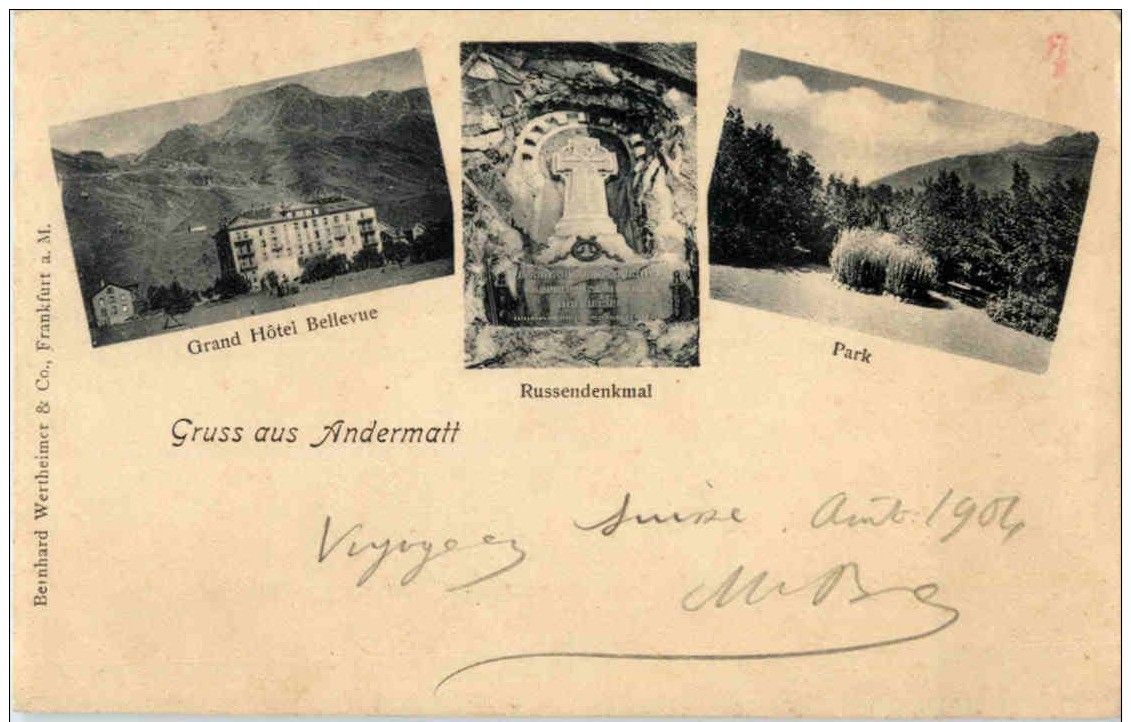 Grand Hôtel Bellevue
Russendenkmal
Park
Gruss aus Andermatt
Voyage en Suisse. Août 1904
Bernhard Wertheimer & Co., Frankfurt a. M.